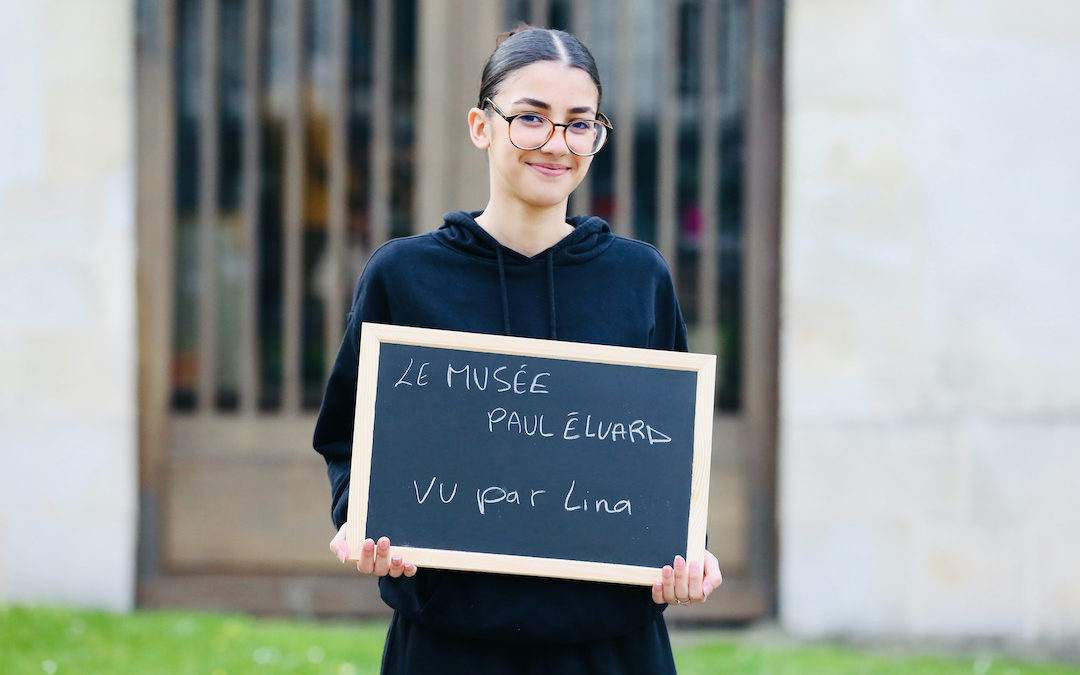 LE MUSÉE
PAUL ÉLUARD
VU par Lina